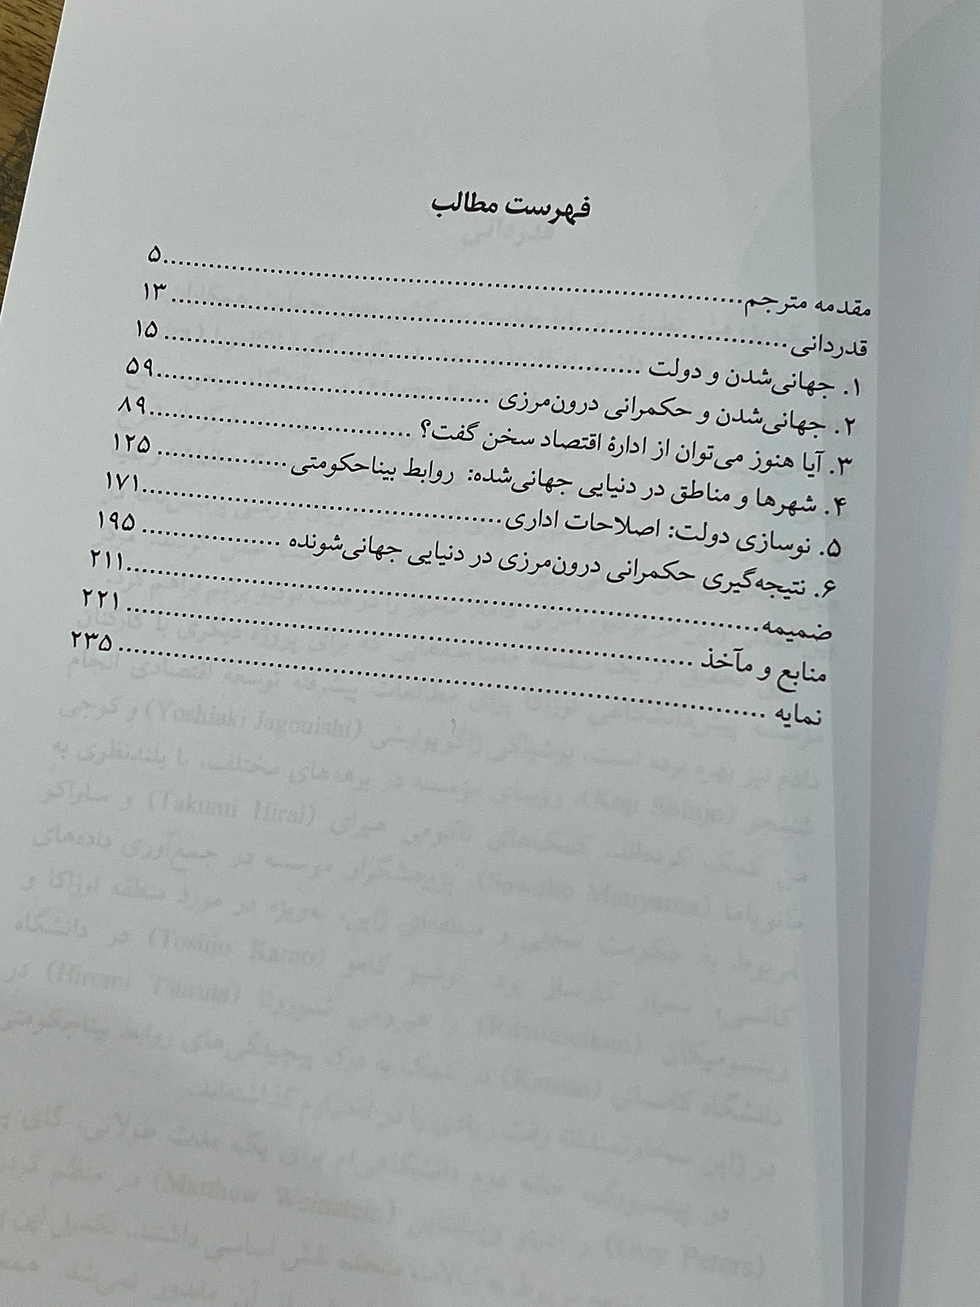 فهرست مطالب
مقدمه مترجم..........................................................................۵
قدردانی.......................................................................... ۱۳
۱. جهانی‌شدن و دولت .......................................................... ۱۵
۲. جهانی‌شدن و حکمرانی درون‌مرزی ..........................................۵۹
۳. آیا هنوز می‌توان از ادارهٔ اقتصاد سخن گفت؟ .................................۸۹
۴. شهرها و مناطق در دنیایی جهانی‌شده: روابط بیناحکومتی ................. ۱۲۵
۵. نوسازی دولت: اصلاحات اداری..............................................۱۷۱
۶. نتیجه‌گیری حکمرانی درون‌مرزی در دنیایی جهانی‌شونده ................. ۱۹۵
ضمیمه...............................................................................۲۱۱
منابع و مآخذ ...................................................................... ۲۲۱
نمایه ................................................................................ ۲۳۵